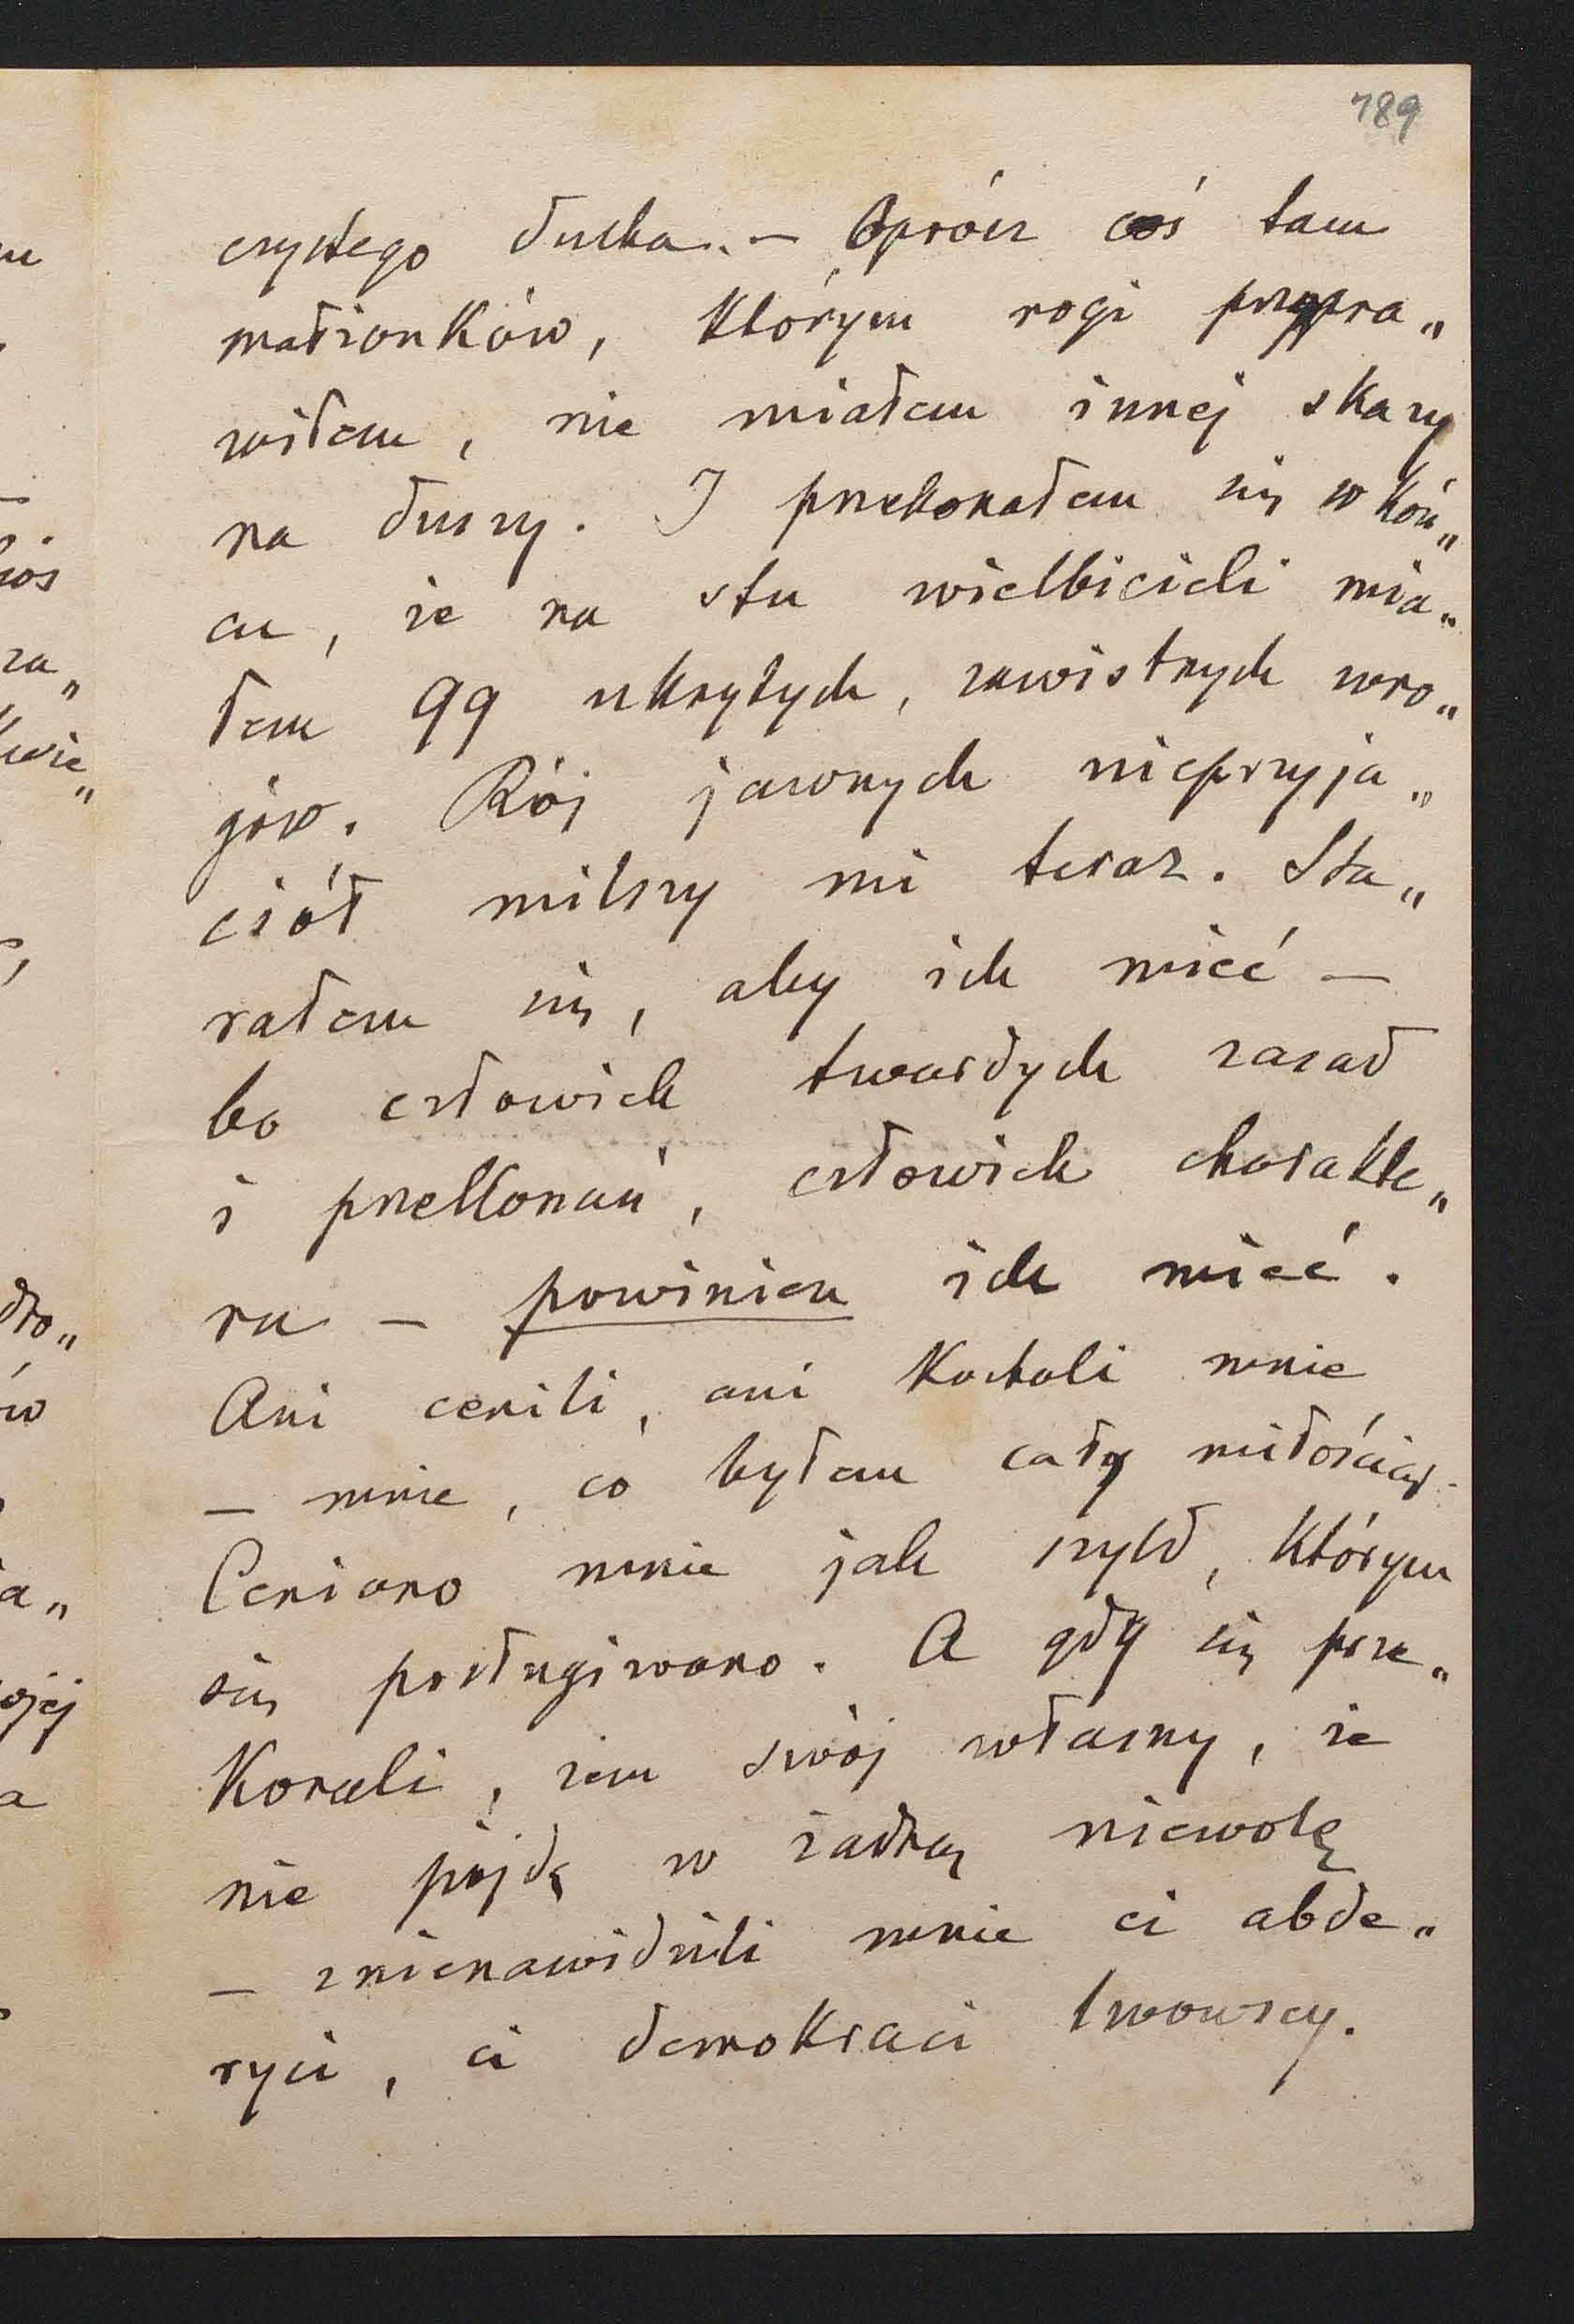 789
czystego ducha. — Oprócz coś tam
małżonków, którym rogi przypra„
wiłem, nie miałem innej skazy
na duszy. I przekonałem się w koń„
cu, że na stu wielbicieli mia„
łem 99 ukrytych, zawistnych wro„
gów. Rój jawnych nieprzyja„
ciół milszy mi teraz. Sta„
rałem się, aby ich mieć —
bo człowiek twardych zasad
i przekonań, człowiek charakte„
ru — powinien ich mieć.
Ani cenili, ani kochali mnie
— mnie, co byłem cały miłością.
Ceniono mnie jak szyld, którym
się posługiwano. A gdy się prze„
konali, żem swój własny, że
nie pójdę w żadną niewolę
— znienawidzili mnie ci abde„
ryci, ci demokraci lwowscy.